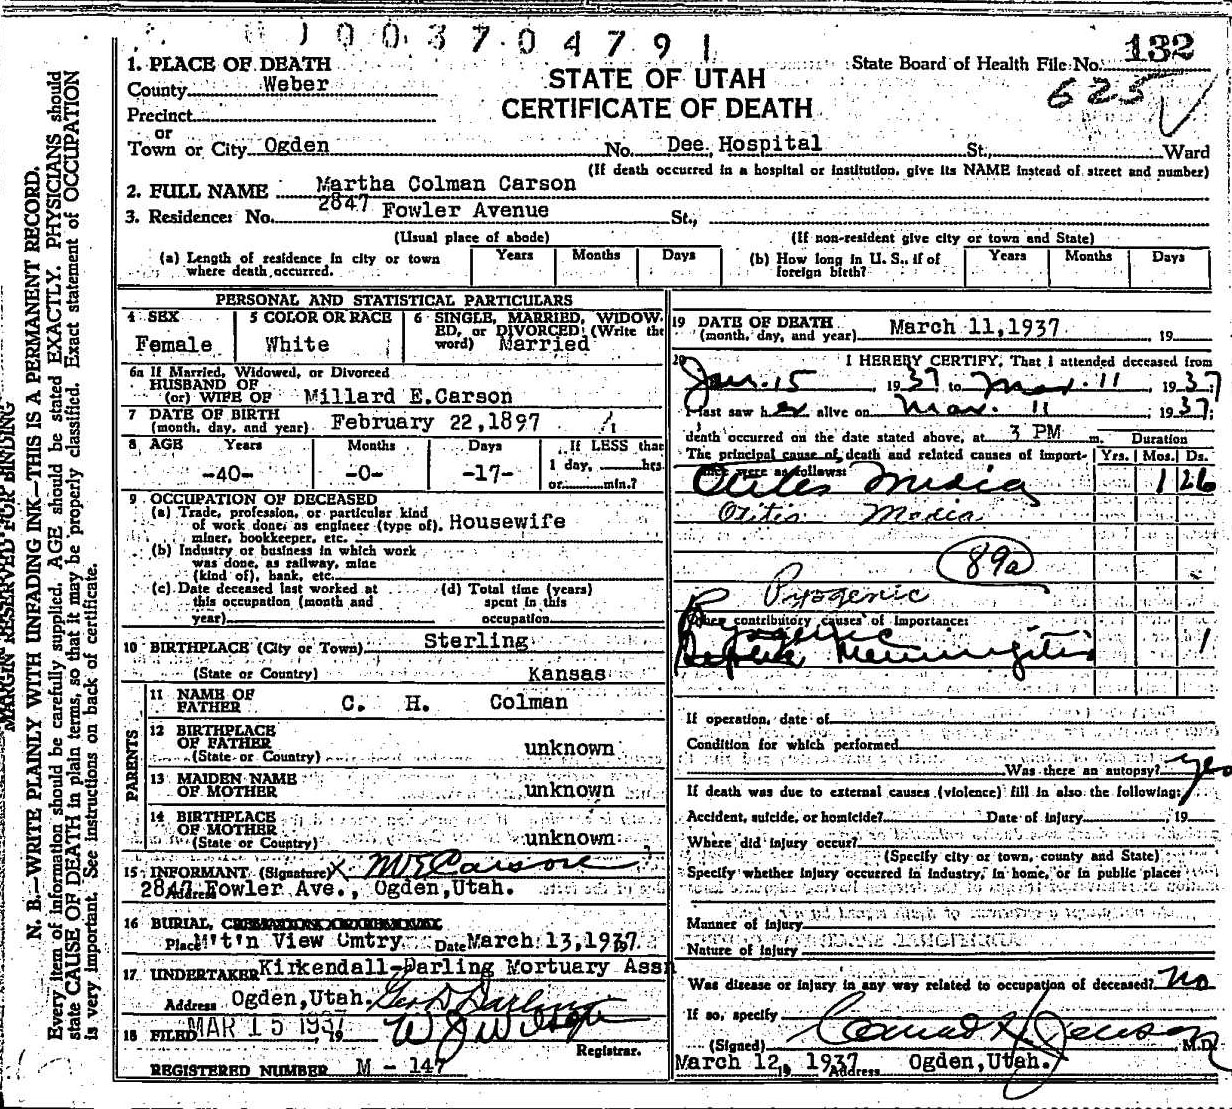 1003704791
132
State Board of Health File No.
625
STATE OF UTAH
CERTIFICATE OF DEATH
1. PLACE OF DEATH
County Weber
Precinct
or
Town or City Ogden No. Dee Hospital St., Ward
(If death occurred in a hospital or institution, give its NAME instead of street and number)
2. FULL NAME Martha Colman Carson
3. Residence: No. 2847 Fowler Avenue St.,
(Usual place of abode) (If non-resident give city or town and State)
(a) Length of residence in city or town where death occurred. Years Months Days
(b) How long in U. S., if of foreign birth? Years Months Days
PERSONAL AND STATISTICAL PARTICULARS
4 SEX
Female
5 COLOR OR RACE
White
6 SINGLE, MARRIED, WIDOWED, or DIVORCED (Write the word) Married
6a If Married, Widowed, or Divorced
HUSBAND OF
(or) WIFE OF Millard E.Carson
7 DATE OF BIRTH
(month, day, and year) February 22,1897
8 AGE Years Months Days If LESS than
-40- -0- -17- 1 day, hrs
or min.?
9 OCCUPATION OF DECEASED
(a) Trade, profession, or particular kind
of work done, as engineer (type of), Housewife
miner, bookkeeper, etc.
(b) Industry or business in which work
was done, as railway, mine
(kind of), bank, etc.
(c) Date deceased last worked at
this occupation (month and
year)
(d) Total time (years)
spent in this
occupation
10 BIRTHPLACE (City or Town) Sterling
(State or Country) Kansas
PARENTS
11 NAME OF
FATHER C. H. Colman
12 BIRTHPLACE
OF FATHER unknown
(State or Country)
13 MAIDEN NAME
OF MOTHER unknown
14 BIRTHPLACE
OF MOTHER unknown
(State or Country)
15 INFORMANT (Signature) X M E Carson
Address 2847 Fowler Ave., Ogden,Utah.
16 BURIAL,
Place M't'n View Cmtry Date March 13,1937
17 UNDERTAKER Kirkendall-Darling Mortuary Assn
Address Ogden,Utah. Geo D Darling
18 FILED MAR 15 1937, 19 W J Wilson
Registrar.
REGISTERED NUMBER M - 147
19 DATE OF DEATH
(month, day, and year) March 11,1937 19
20 I HEREBY CERTIFY, That I attended deceased from
Jan. 15, 1937 to Mar. 11, 1937
I last saw her alive on Mar. 11 1937;
death occurred on the date stated above, at 3 PM m. Duration
The principal cause of death and related causes of importance were as follows: Yrs. Mos. Ds.
Otites Media 1 26
Otitis Media
89a
Pyogenic
Other contributory causes of importance:
Pyogenic
Meningitis 1
If operation, date of
Condition for which performed
Was there an autopsy? yes
If death was due to external causes (violence) fill in also the following:
Accident, suicide, or homicide? Date of injury , 19
Where did injury occur?
(Specify city or town, county and State)
Specify whether injury occurred in industry, in home, or in public place:
Manner of injury
Nature of injury
Was disease or injury in any way related to occupation of deceased? No
If so, specify
(Signed) Conrad H Jenson M.D.
March 12, 1937 Address Ogden,Utah.
MARGIN RESERVED FOR BINDING
N. B.—WRITE PLAINLY WITH UNFADING INK—THIS IS A PERMANENT RECORD.
Every item of information should be carefully supplied. AGE should be stated EXACTLY. PHYSICIANS should
state CAUSE OF DEATH in plain terms, so that it may be properly classified. Exact statement of OCCUPATION
is very important. See instructions on back of certificate.